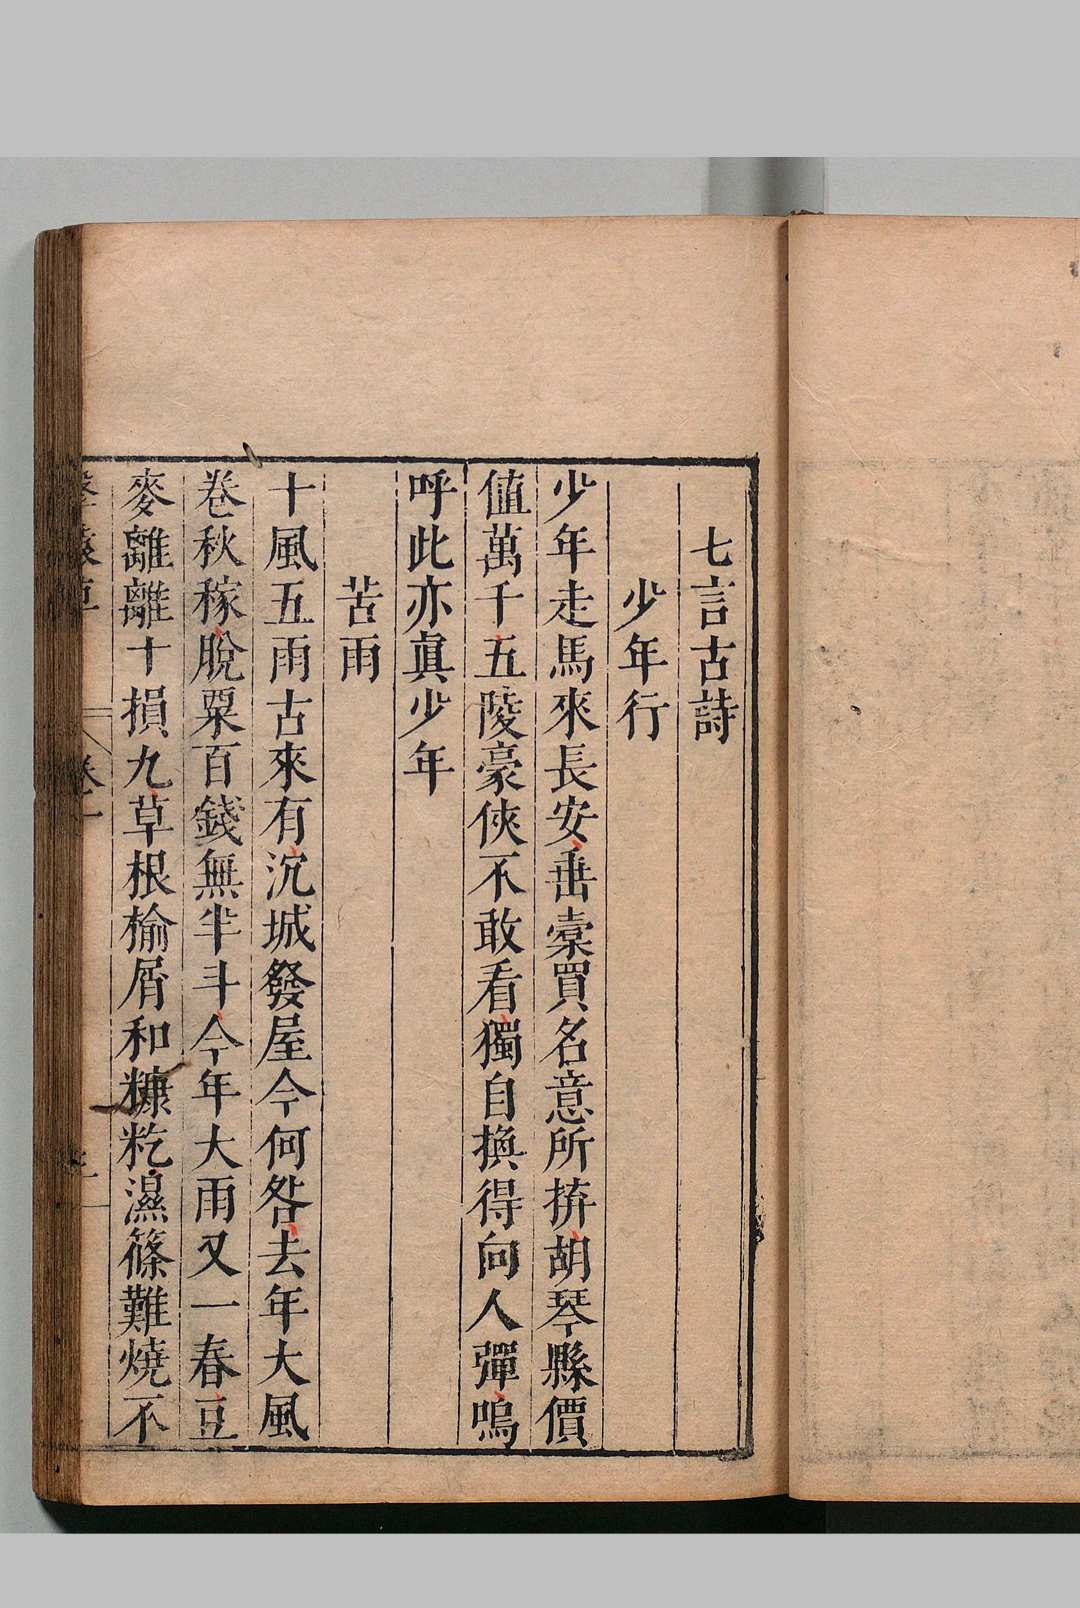 七言古詩
少年行
少年走馬來長安垂橐買名意所拚胡琴縣價
値萬千五陵豪俠不敢看獨自換得向人彈嗚
呼此亦眞少年
苦雨
十風五雨古來有沉城發屋今何咎去年大風
卷秋稼脫粟百錢無半斗今年大雨又一春豆
麥離離十損九草根榆屑和糠籺濕篠難燒不